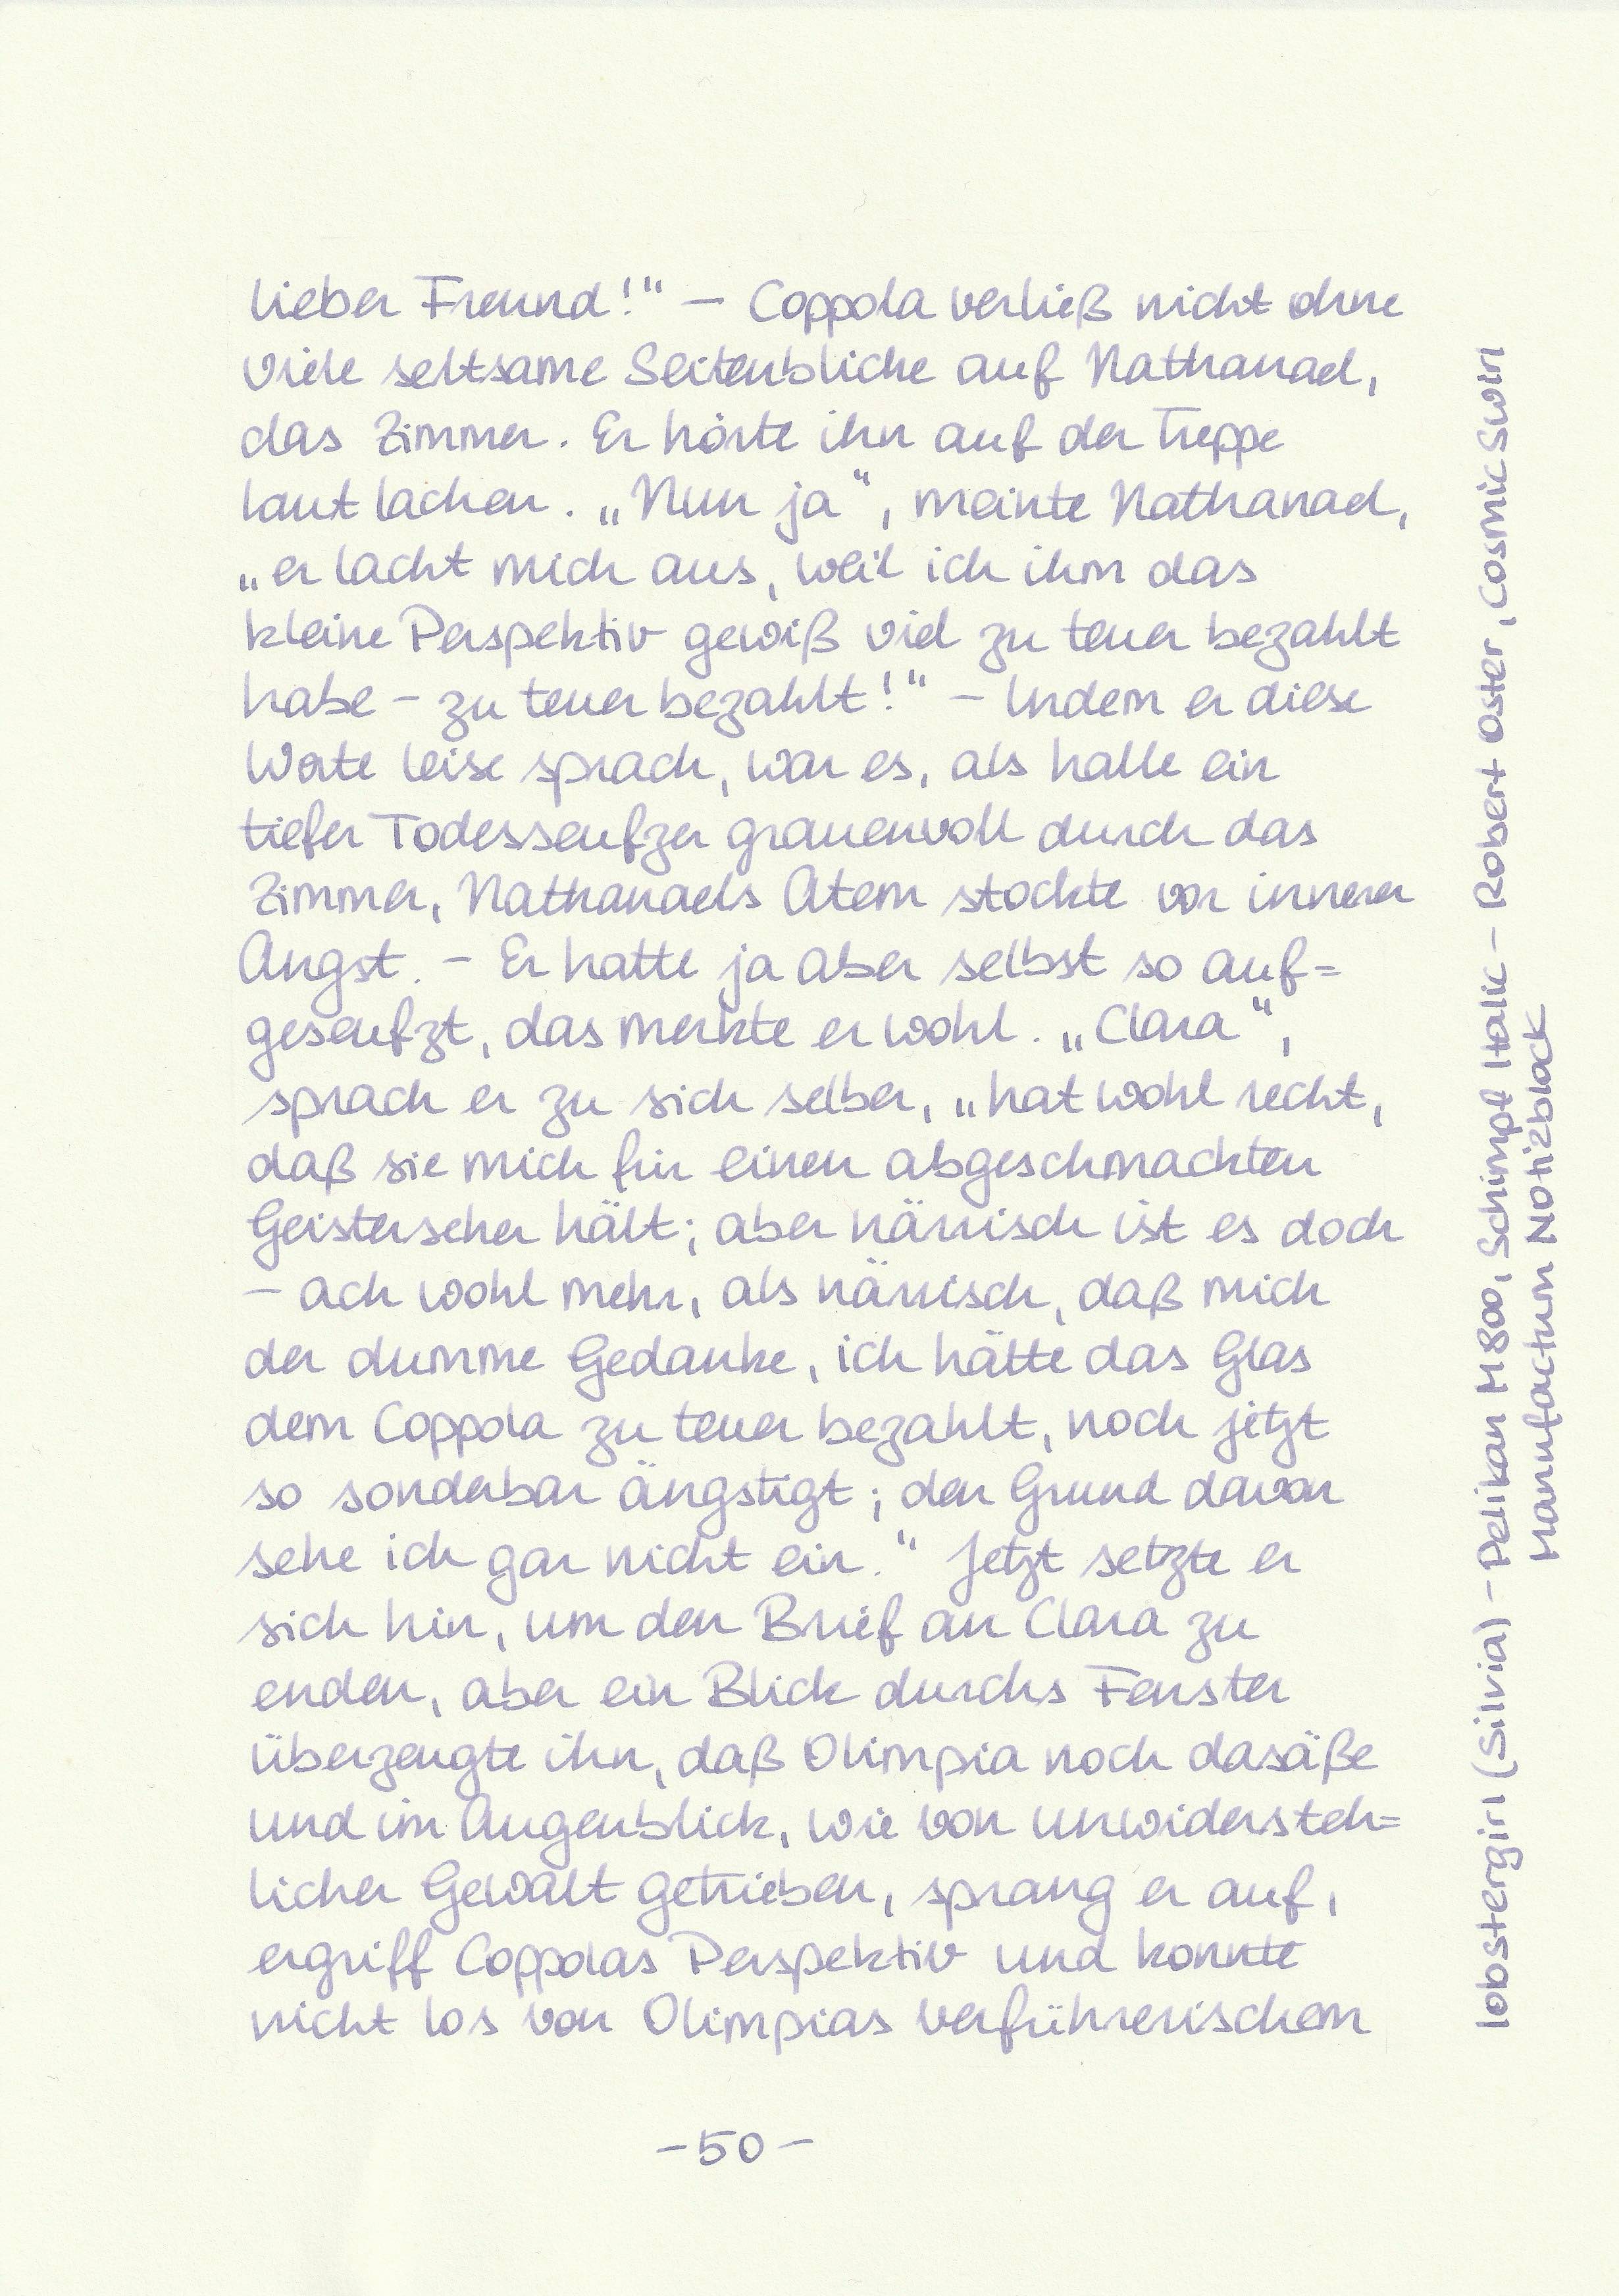 lieber Freund!“ – Coppola verließ nicht ohne
viele seltsame Seitenblicke auf Nathanael,
das Zimmer. Er hörte ihn auf der Treppe
laut lachen. „Nun ja“, meinte Nathanael,
„er lacht mich aus, weil ich ihm das
kleine Perspektiv gewiß viel zu teuer bezahlt
habe – zu teuer bezahlt!“ – Indem er diese
Worte leise sprach, war es, als halle ein
tiefer Todesseufzer grauenvoll durch das
Zimmer, Nathanaels Atem stockte vor innerer
Angst. – Er hatte ja aber selbst so auf=
geseufzt, das merkte er wohl. „Clara“,
sprach er zu sich selber, „hat wohl recht,
daß sie mich für einen abgeschmackten
Geisterseher hält; aber närrisch ist es doch
– ach wohl mehr, als närrisch, daß mich
der dumme Gedanke, ich hätte das Glas
dem Coppola zu teuer bezahlt, noch jetzt
so sonderbar ängstigt; den Grund davon
sehe ich gar nicht ein.“ Jetzt setzte er
sich hin, um den Brief an Clara zu
enden, aber ein Blick durchs Fenster
überzeugte ihn, daß Olimpia noch dasäße
und im Augenblick, wie von unwidersteh=
licher Gewalt getrieben, sprang er auf,
ergriff Coppolas Perspektiv und konnte
nicht los von Olimpias verführerischem
– 50 –
lobstergirl (Silvia) – Pelikan M800, Schimpf Italic – Robert Oster, Cosmic Swirl
Manufactum Notizblock